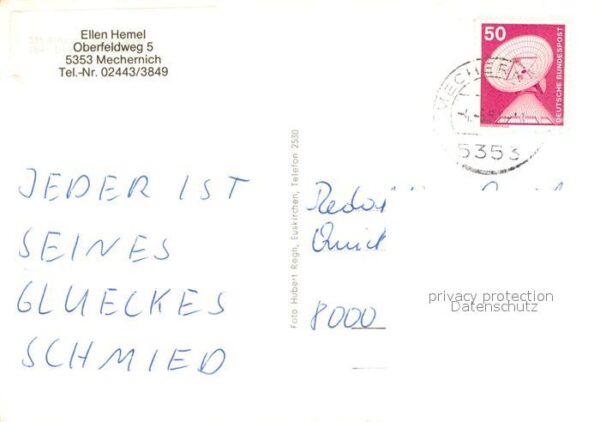 Ellen Hemel
Oberfeldweg 5
5353 Mechernich
Tel.-Nr. 02443/3849
50
DEUTSCHE BUNDESPOST
5353
JEDER IST
SEINES
GLUECKES
SCHMIED
Foto Hubert Regh, Euskirchen, Telefon 2530
Quick
8000
privacy protection
Datenschutz